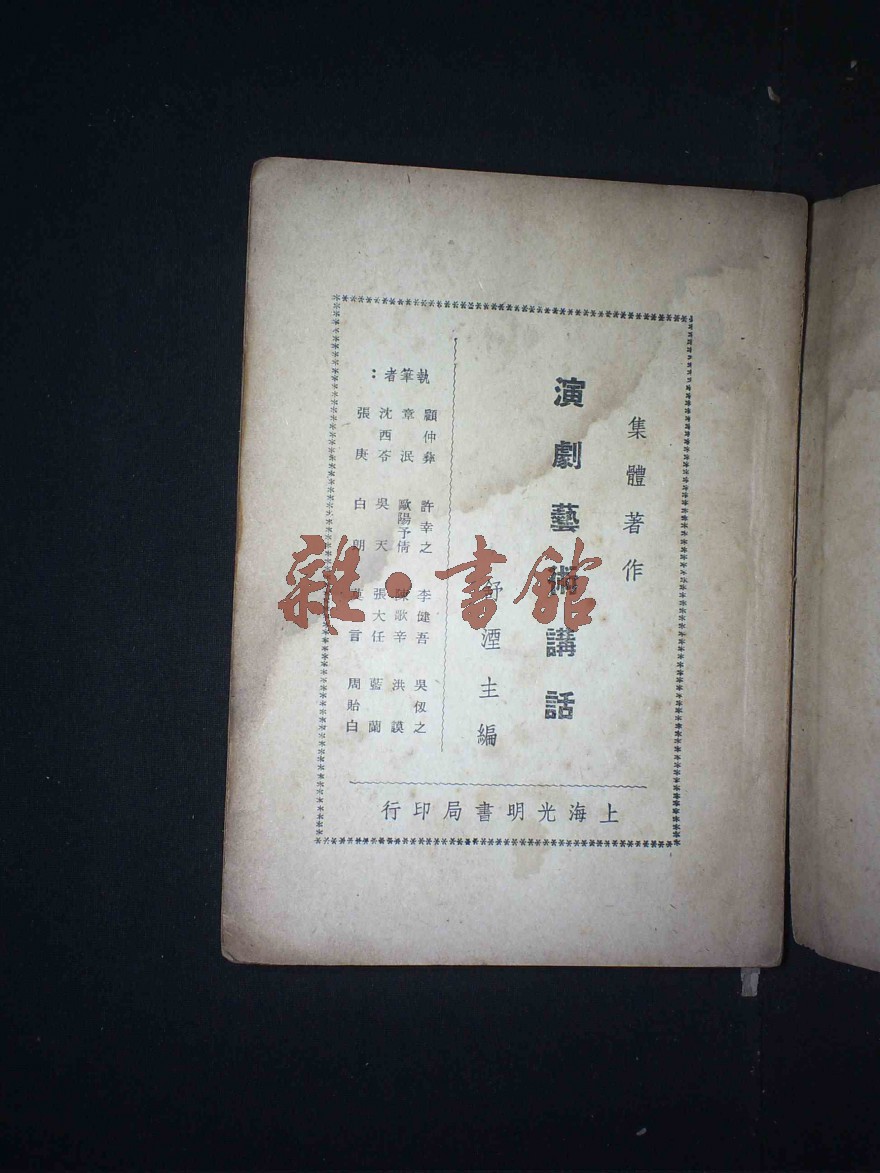 集體著作
演劇藝術講話
舒湮主編
執筆者：
顧仲彝 許幸之 李健吾 吳仞之
章泯 歐陽予倩 陳歌辛 洪謨
沈西苓 吳天 張大任 藍蘭
張庚 白朗 莫言 周貽白
上海光明書局印行
雜·書館